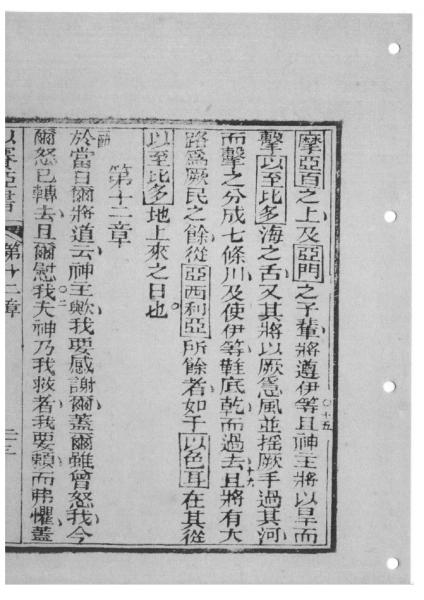 摩亞百之上及亞門之子輩將遵伊等且神主將以旱而
十五
擊以至比多海之舌又其將以厥慿風並摇厥手過其河
而擊之分成七條川及使伊等鞋底乾而過去且將有大
十六
路爲厥民之餘從亞西利亞所餘者如于以色耳在其從
以至比多地上來之日也
第十二章
一節
於當日爾將道云神主歟我要感謝爾蓋爾雖曾怒我今
爾怒已轉去且爾慰我夫神乃我救者我要賴而弗懼蓋
二
以賽亞書 第十二章 二十三